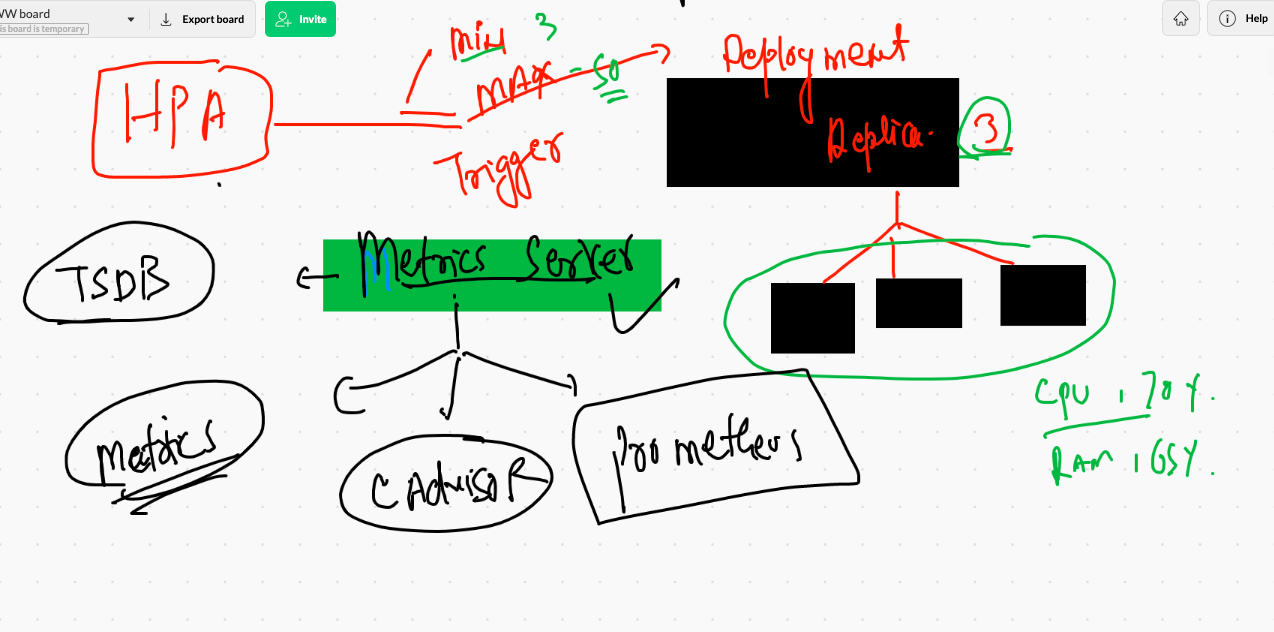 WW board
is board is temporary
Export board
Invite
Help
Min 3
HPA
MAX - 50
Trigger
Deployment
Replica. 3
TSDB
Metrics Server
Metrics
CAdvisoR
Prometheus
CPU , 70%.
RAM , 65%.